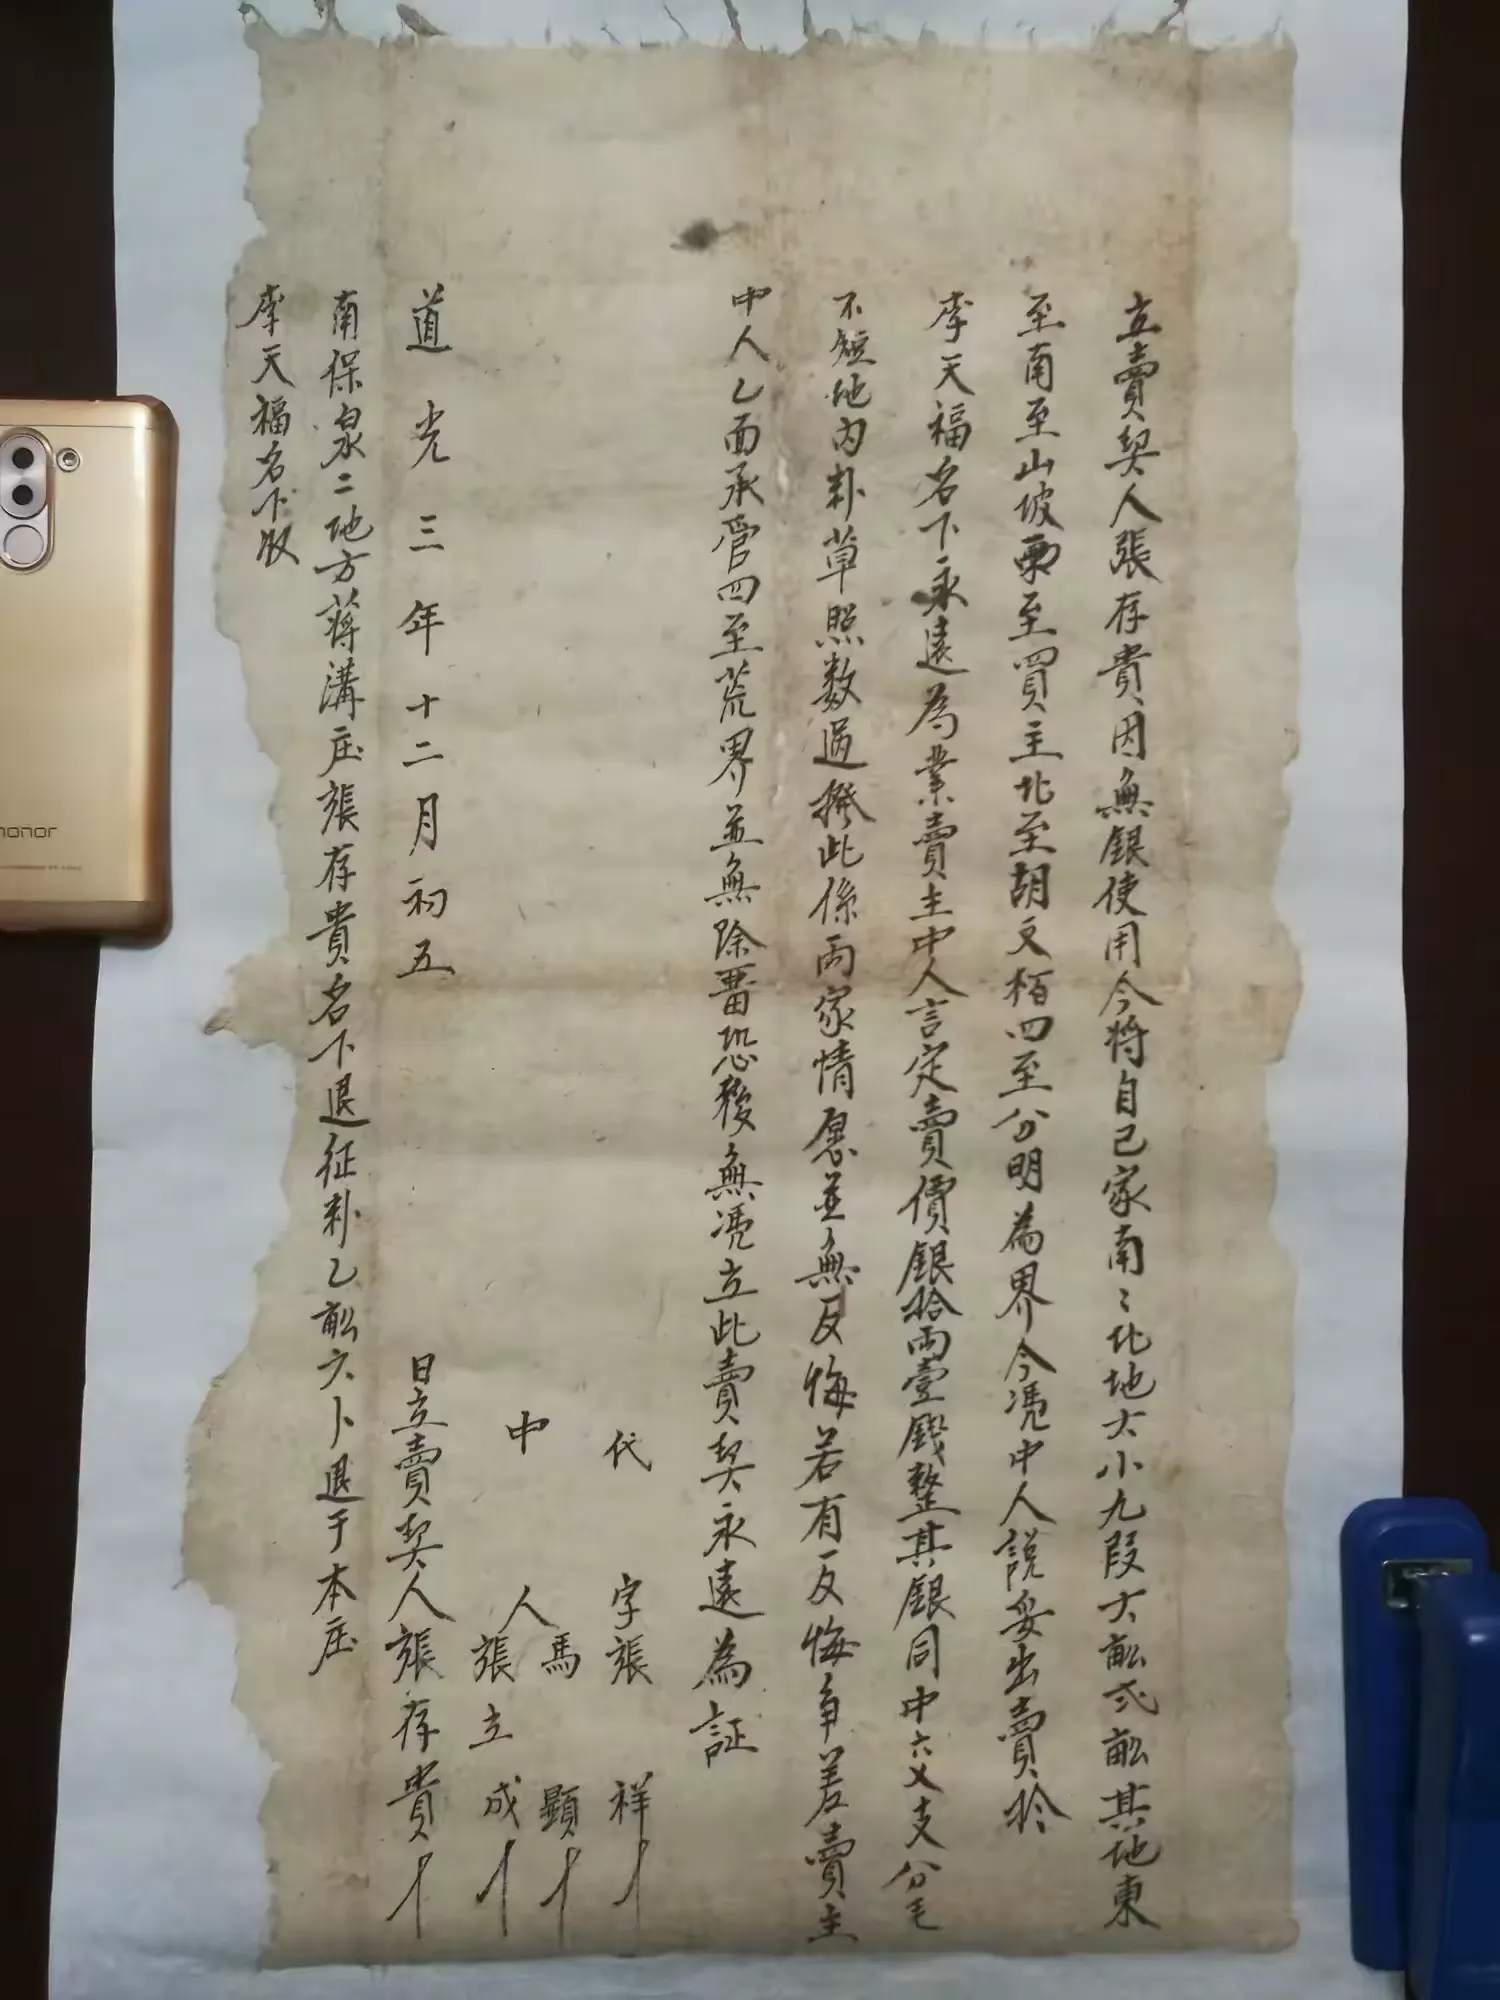 立賣契人張存貴因無銀使用今將自己家南〻北地大小九段大畝弍畝其地東
至南至山坡西至買主北至胡文栢四至分明為界今凴中人說妥出賣於
李天福名下永遠為業賣主中人言定賣價銀拾両壹錢整其銀同中六乂支分毛
不短地內卦草照数過撥此係両家情愿並無反悔若有反悔爭差賣主
中人乙面承管四至荒界並無除畱恐後無凴立此賣契永遠為証
代字張祥
中人馬顯
張立成
道光三年十二月初五日立賣契人張存貴
南保泉二地方蔣溝庄張存貴名下退征卦乙畝六卜退于本庄
李天福名下收
honor